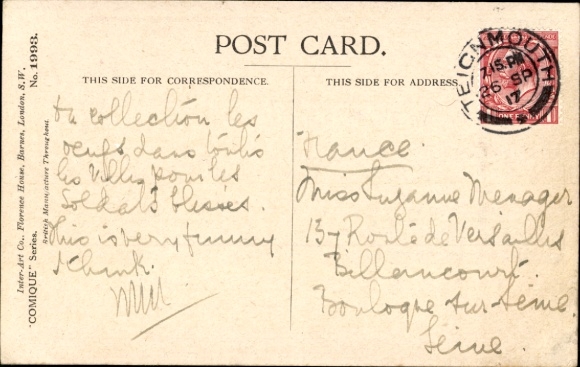 POST CARD.
THIS SIDE FOR CORRESPONDENCE.
THIS SIDE FOR ADDRESS
Inter-Art Co., Florence House, Barnes, London, S.W.
British Manufacture Throughout.
"COMIQUE" Series. No. 1993.
TEIGNMOUTH
7.15 PM
26 SP
17
ONE PENNY
collection les
oeufs dans toutes
les villes pour les
Soldats blessés.
This is very funny
I think.
France
Miss Suzanne Menager
137 Route de Versailles
Billancourt.
Boulogne sur Seine.
Seine.